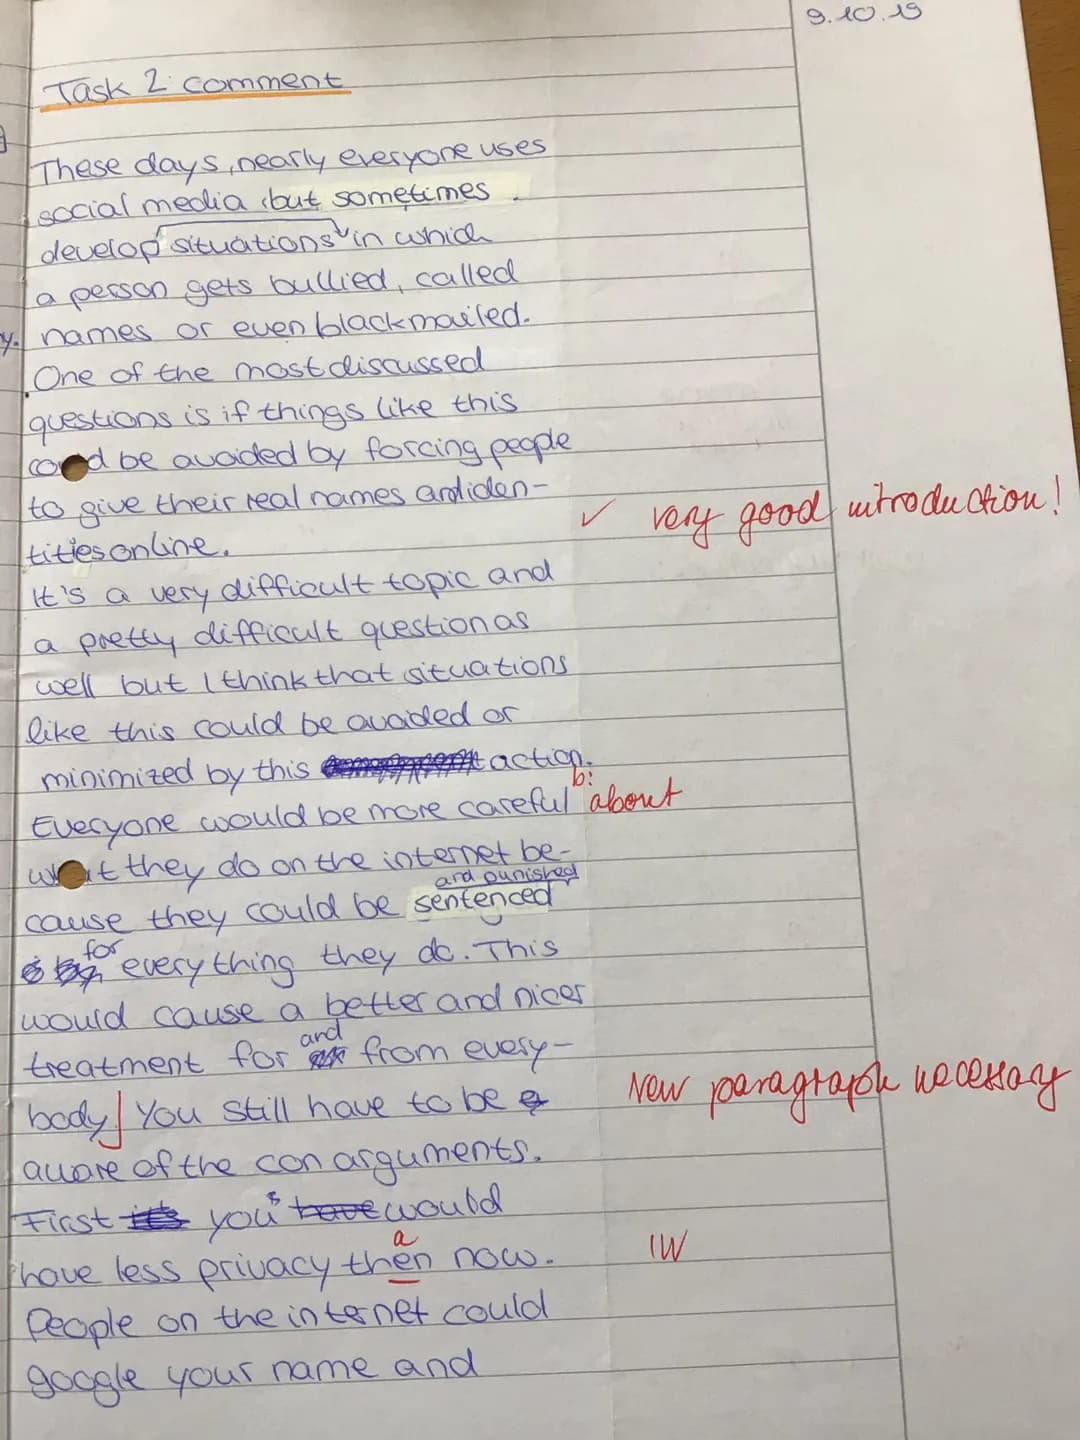 9.10.19
Task 2: comment
These days, nearly everyone uses
social media, but sometimes
develop situations in which
a person gets bullied, called
names or even blackmailed.
One of the most discussed
questions is if things like this
be avoided by forcing people
to give their real names and iden-
tities online.
✓ very good introduction!
It's a very difficult topic and
a pretty difficult question as
well but I think that situations
like this could be avoided or
minimized by this action.
b:
Everyone would be more careful about
they do on the internet be-
and punished
cause they could be sentenced
for
everything they do. This
would cause a better and nicer
and
treatment for from every-
body. You still have to be
New paragraph necessary
aware of the con arguments.
First you have would
a
have less privacy then now.
IW
People on the internet could
google your name and